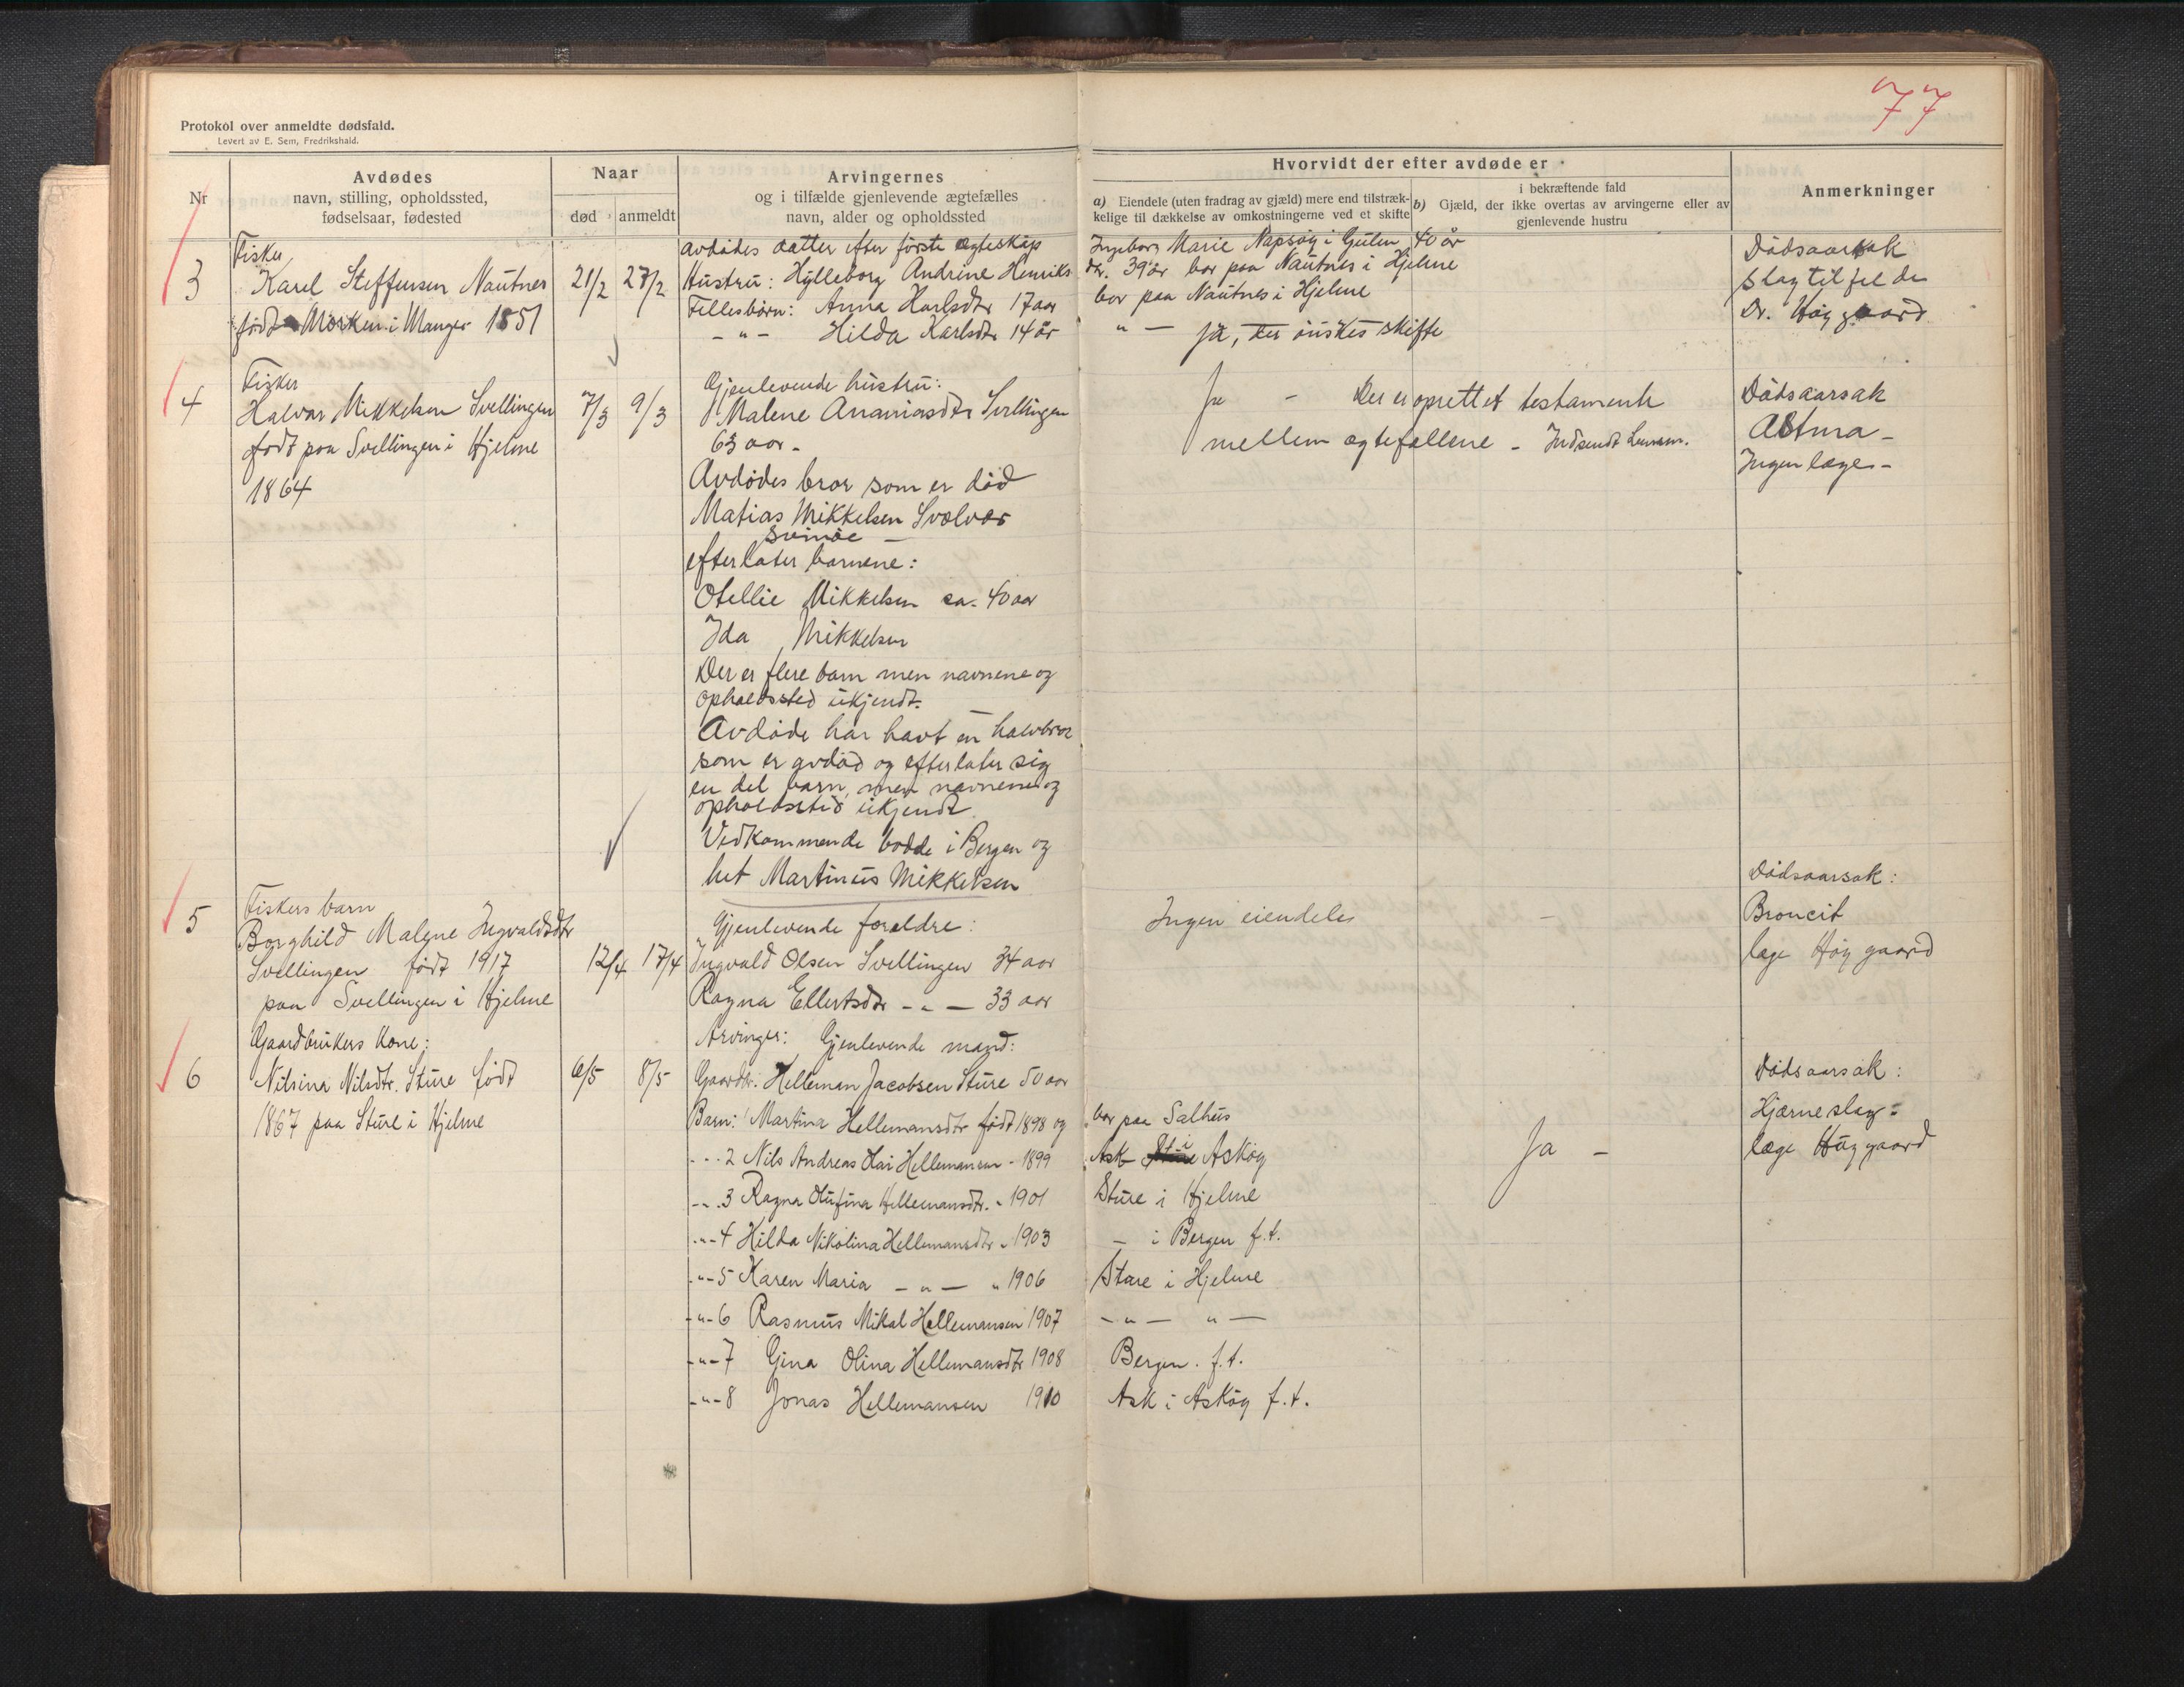 77
Protokol over anmeldte dødsfald.
Levert av E. Sem, Fredrikshald.
Nr
Avdødes
navn, stilling, opholdssted,
fødselsaar, fødested
Naar
død
anmeldt
Arvingernes
og i tilfælde gjenlevende ægtefælles
navn, alder og opholdssted
Hvorvidt der efter avdøde er
a) Eiendele (uten fradrag av gjæld) mere end tilstræk-
kelige til dækkelse av omkostningerne ved et skifte
i bekræftende fald
b) Gjæld, der ikke overtas av arvingerne eller av
gjenlevende hustru
Anmerkninger
3
Fisker
Karel Steffensen Nautnes
født Morken i Manger 1851
21/2 27/2
avdødes datter efter første egteskap Ingeborg Marie Napsøy i Gulen 40 år
Hustru: Hylleborg Andrine Henriks dtr. 39 år bor paa Nautnes i Hjelme
Fellesbörn: Anna Karlsdtr 17 aar bor paa Nautnes i Hjelme
- " - Hilda Karlsdtr 14 år " —
Ja, der önskes skifte
Dødsaarsak
Slagtilfelde
Dr. Høygaard
4
Fisker
Halvor Mikkelsen Svellingen
født paa Svellingen i Hjelme
1864
7/3 9/3
Gjenlevende hustru:
Malene Ananiasdtr Svellingen
63 aar -
Avdødes bror som er død
Matias Mikkelsen Svolvær
Svinöe -
efterlater barnene:
Otellie Mikkelsen ca. 40 aar
Ida Mikkelsen
Der er flere barn men navnene og
opholdssted ukjendt.
Avdøde har havt en halvbror
som er avdød og efterlater sig
en del barn, men navnene og
opholdssted ukjendt.
Vedkommende bodde i Bergen og
het Martinus Mikkelsen
Ja - Der er oprettet testamente
mellem egtefellene - Indsendt Lensm.
Dødsaarsak
Astma -
Ingen læge -
5
Fiskers barn
Borghild Malene Ingvaldsdtr
Svellingen født 1917
paa Svellingen i Hjelme
12/4 17/4
Gjenlevende foreldre:
Ingvald Olsen Svellingen 34 aar
Ragna Ellertsdtr - " - 33 aar
Ingen eiendeler
-
Dødsaarsak:
Broncit
læge Høygaard
6
Gaardbrukers kone:
Nilsina Nilsdtr. Sture født
1867 paa Sture i Hjelme
6/5 8/5
Arvinger: Gjenlevende mand:
Gaardbr. Helleman Jacobsen Sture 50 aar
Barn: 1 Martina Hellemansdtr født 1898 og bor paa Salhus
- " - 2 Nils Andreas Hellemansen - 1899 Ask i Askøy
- " - 3 Ragna Olufina Hellemansdtr. " 1901 Sture i Hjelme
- " - 4 Hilda Nikolina Hellemansdtr " 1903 - i Bergen f.t.
- " - 5 Karen Maria - " - " 1906 Sture i Hjelme
- " - 6 Rasmus Mikal Hellemansen 1907 - " - " -
- " - 7 Gina Olina Hellemansdtr 1908 Bergen. f.t.
- " - 8 Jonas Hellemansen 1910 Ask i Askøy f.t.
Ja -
Dødsaarsak:
Hjerneslag -
læge Høygaard